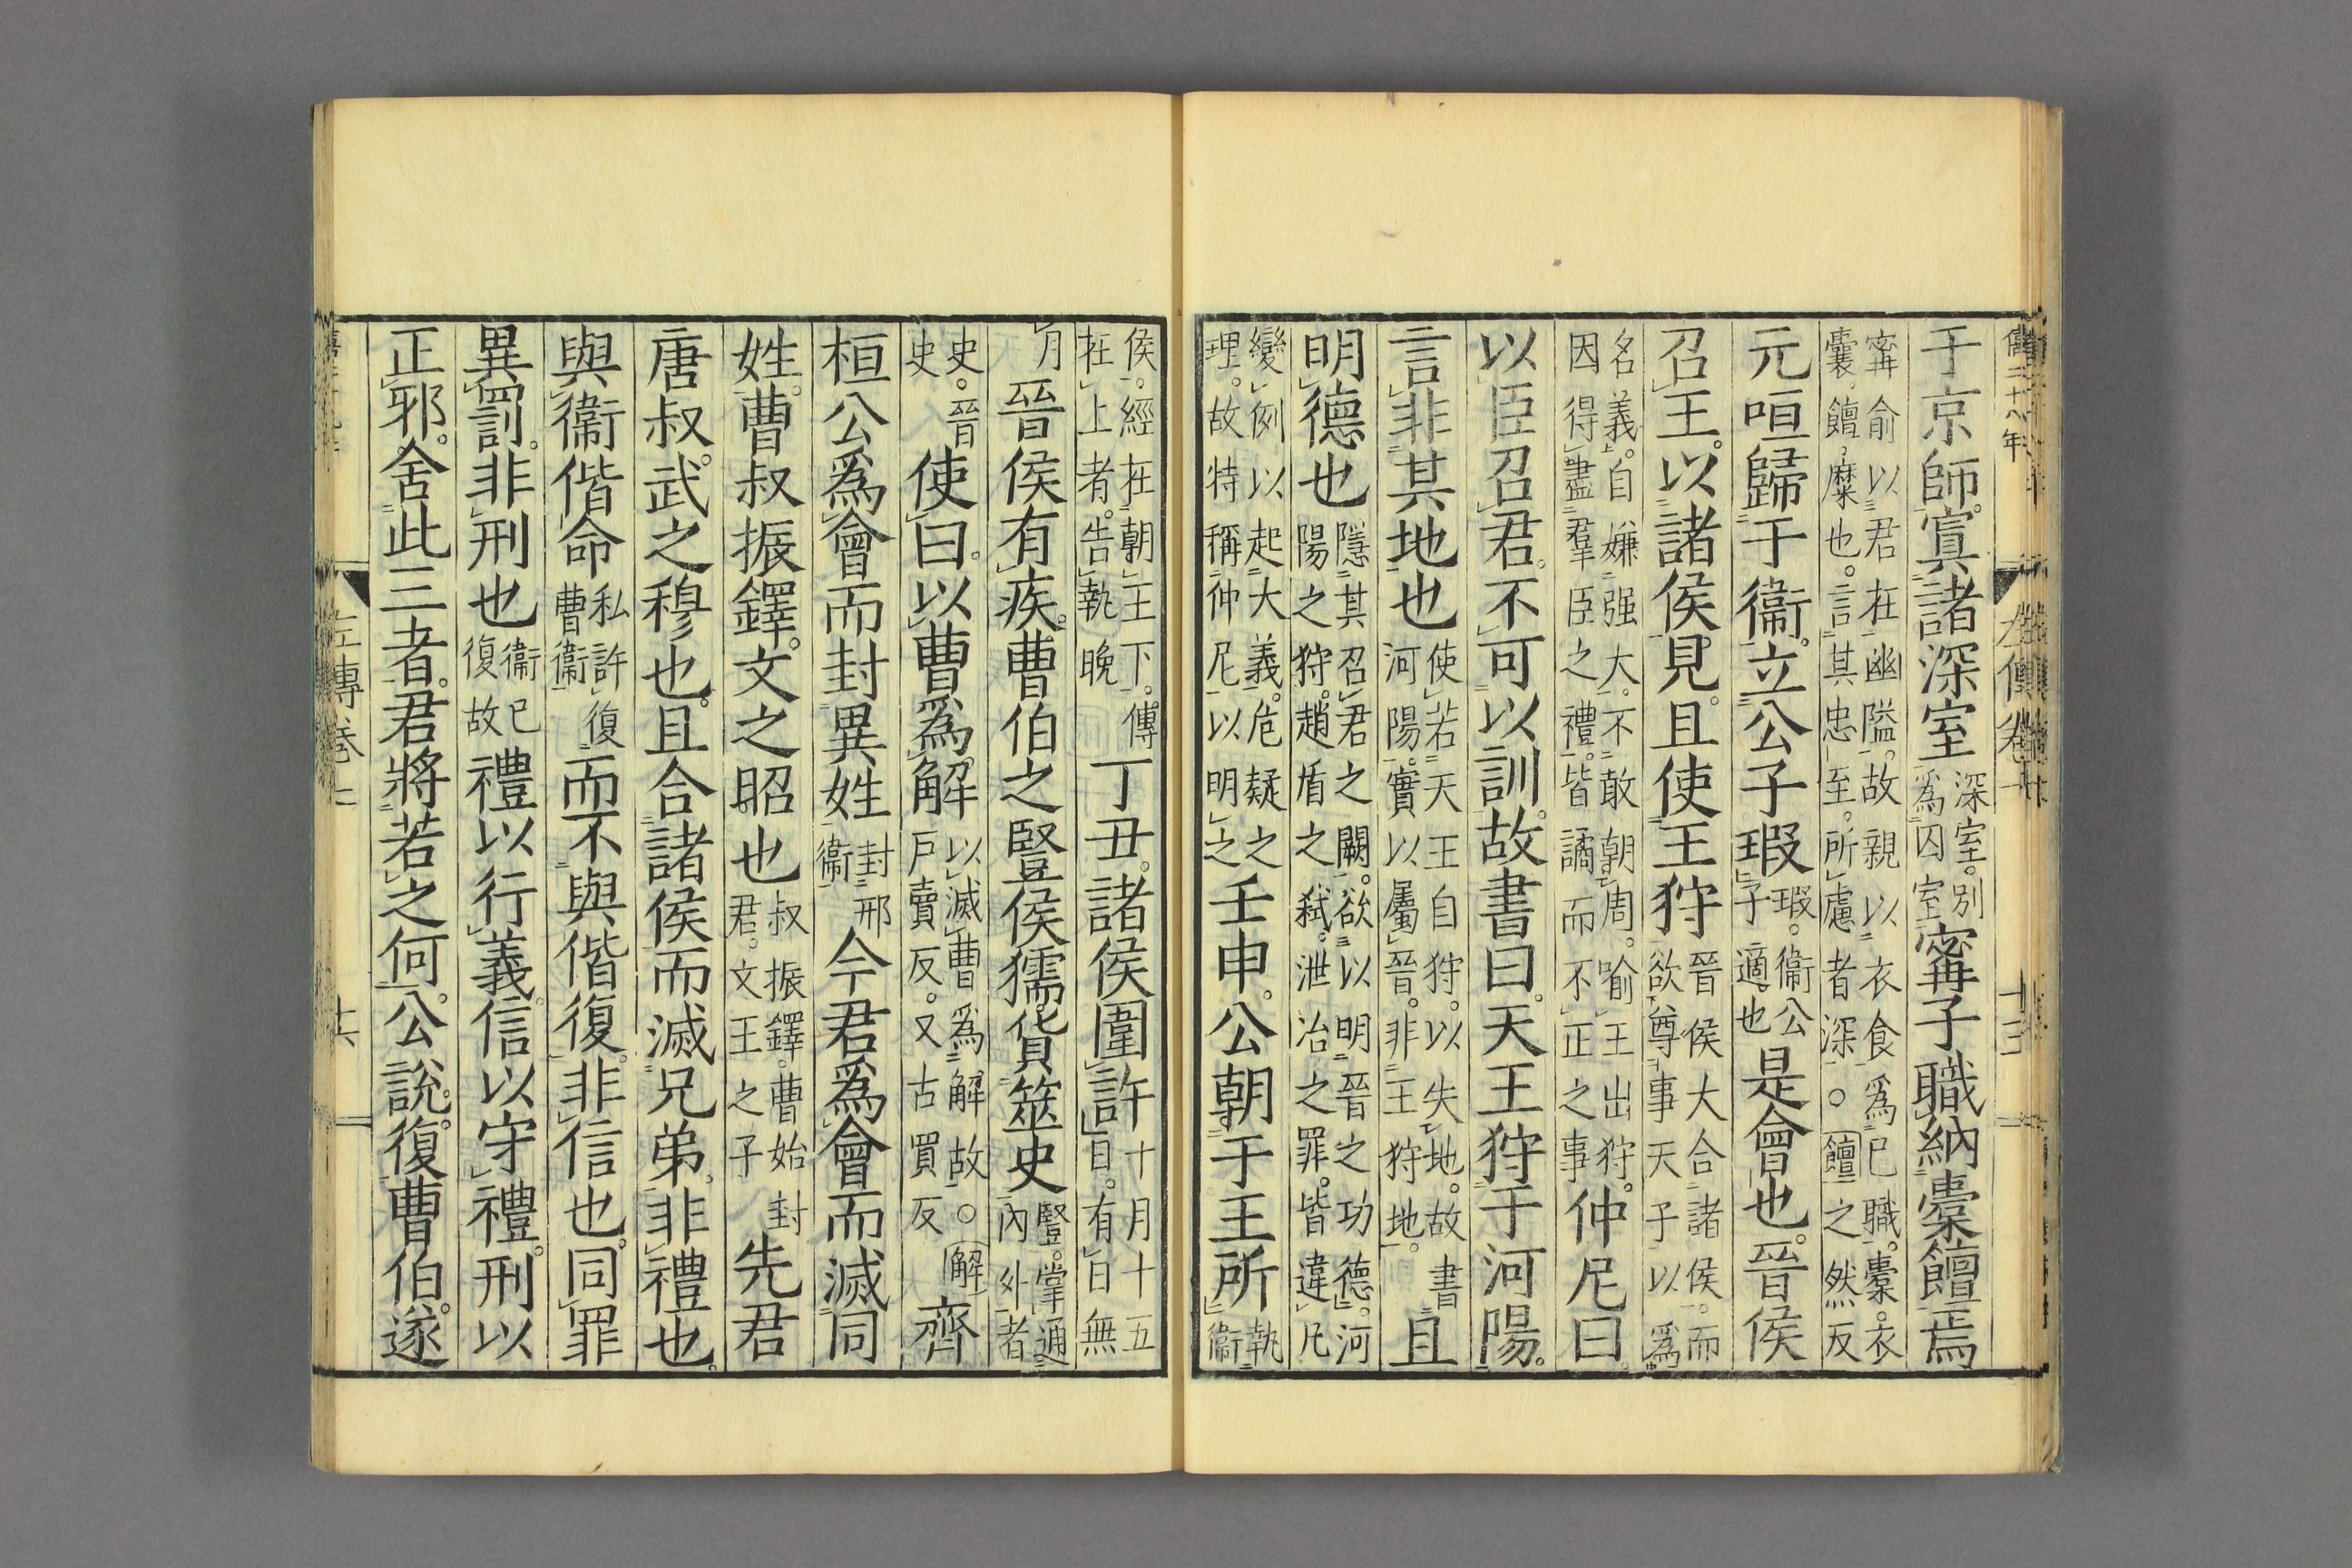 僖二十八年
左傳卷
十三
于京師寘諸深室深室別爲囚室甯子職納橐饘焉
甯俞以君在幽隘故親以衣食爲己職橐衣
囊饘糜也言其忠至所慮者深○饘之然反
元咺歸于衞立公子瑕瑕衞公子適也是會也晉侯
召王以諸侯見且使王狩晉侯大合諸侯而欲尊事天子以爲
名義自嫌强大不敢朝周喻王出狩因得盡羣臣之禮皆譎而不正之事仲尼曰
以臣召君不可以訓故書曰天王狩于河陽
言非其地也使若天王自狩以失地故書河陽實以屬晉非王狩地且
明德也隱其召君之闕欲以明晉之功德河陽之狩趙盾之弒泄冶之罪皆違凡
變例以起大義危疑之理故特稱仲尼以明之壬申公朝于王所執衞
侯經在朝王下傳在上者告執晚丁丑諸侯圍許十月十五日有日無
月晉侯有疾曹伯之豎侯獳貨筮史豎掌通內外者
史晉史使曰以曹爲解以滅曹爲解故○解戶賣反又古買反齊
桓公爲會而封異姓封邢衞今君爲會而滅同
姓曹叔振鐸文之昭也叔振鐸曹始封君文王之子先君
唐叔武之穆也且合諸侯而滅兄弟非禮也
與衞偕命私許復曹衞而不與偕復非信也同罪
異罰非刑也衞已復故禮以行義信以守禮刑以
正邪舍此三者君將若之何公說復曹伯遂
左傳卷七